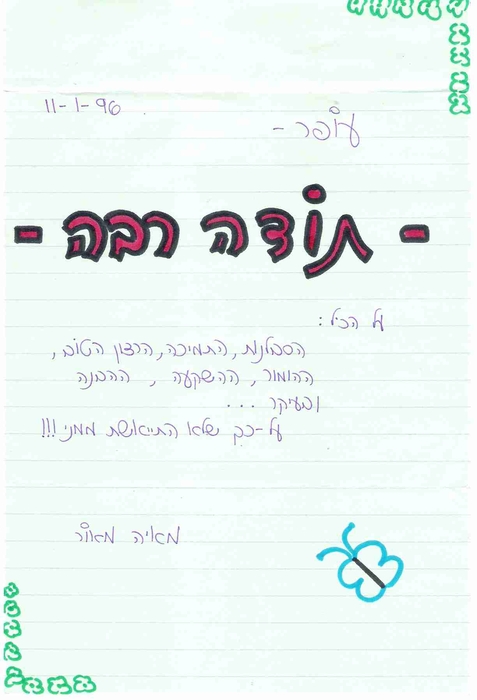 11-1-96
עופר -
- תודה רבה -
על הכל :
הסבלנות, התמיכה, הרצון הטוב,
ההומור, ההשקעה, ההבנה
ובעיקר ...
על-כך שלא התייאשת ממני !!!
מאיה מאור